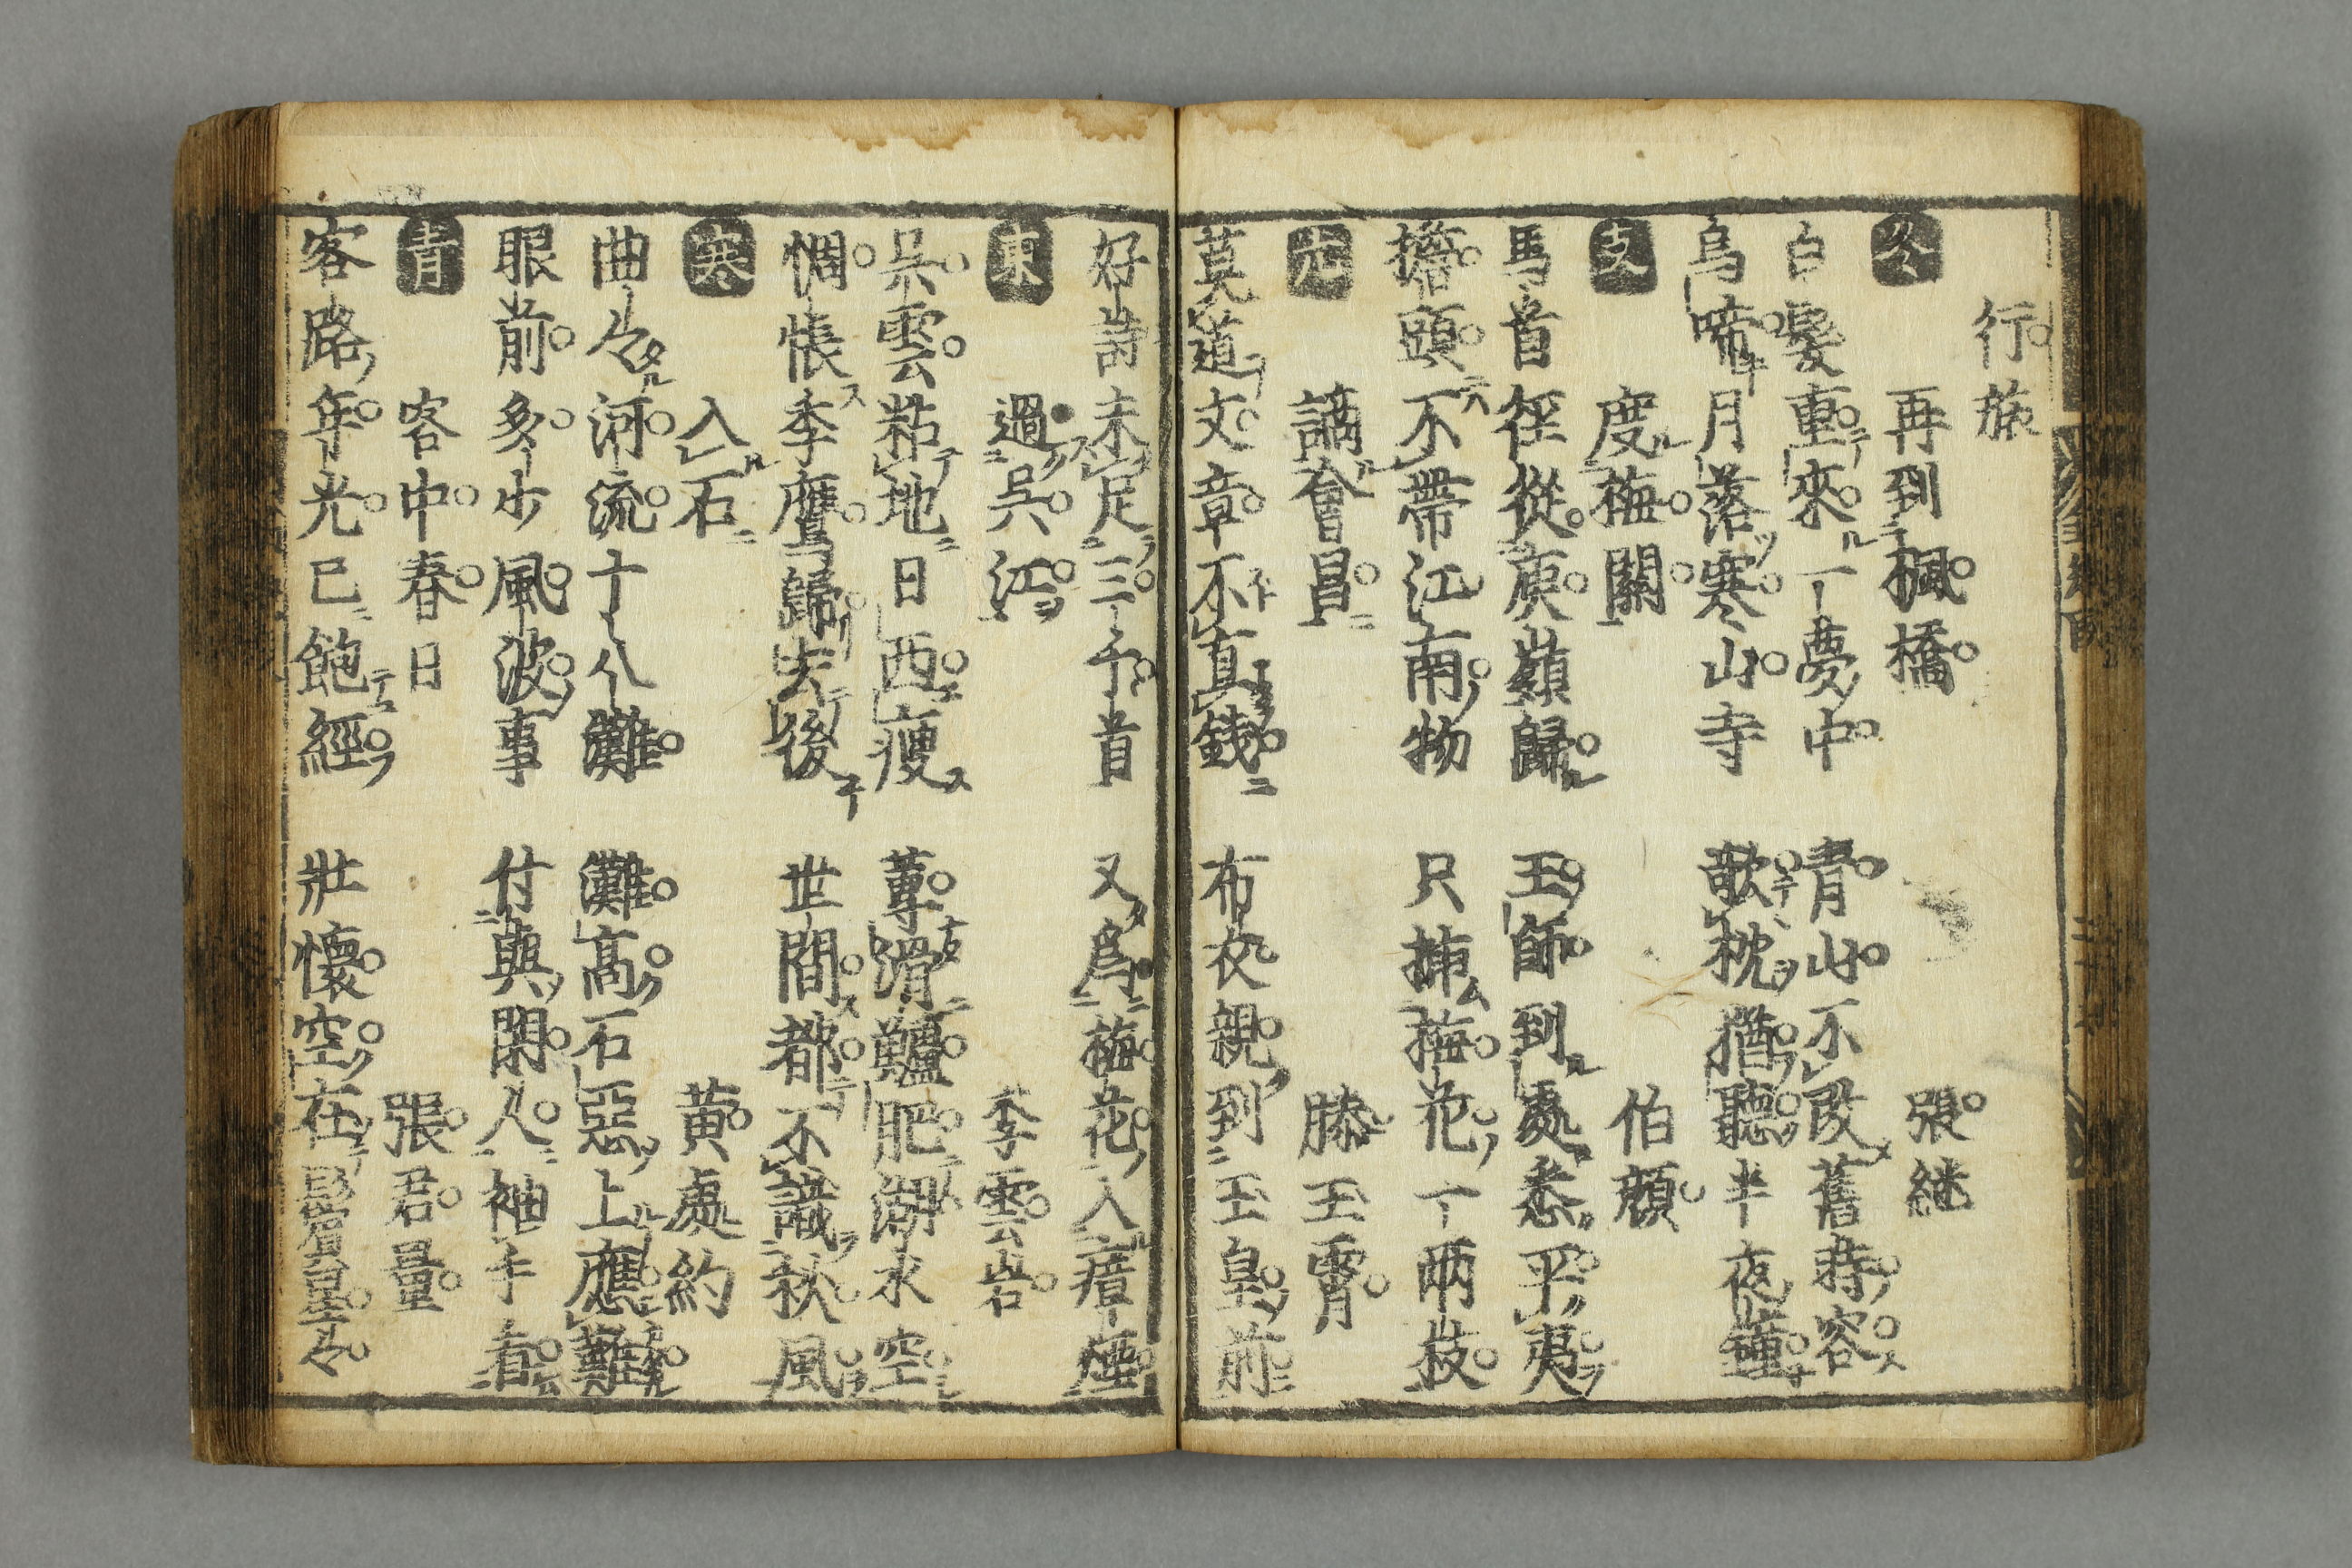 行旅
冬 再到楓橋 張継
白髮重來一夢中 青山不改舊時容
烏啼月落寒山寺 欹枕猶聽半夜鐘
支 度梅關 伯顔
馬首徑從庾嶺歸 王師到處悉平夷
擔頭不帶江南物 只挿梅花一兩枝
先 謫會昌 滕王霄
莫道文章不直錢 布衣親到玉皇前
好詩未足三千首 又爲梅花入瘴煙
東 過吳江 李雲岩
吳雲粘地日西瘦 蓴滑鱸肥湖水空
惆悵季鷹歸去後 世間都不識秋風
寒 入石 黄處約
曲〻河流十八灘 灘高石惡上應難
眼前多少風波事 付與閑人袖手看
青 客中春日 張君量
客路年光已飽經 壯懷空在鬢星〻